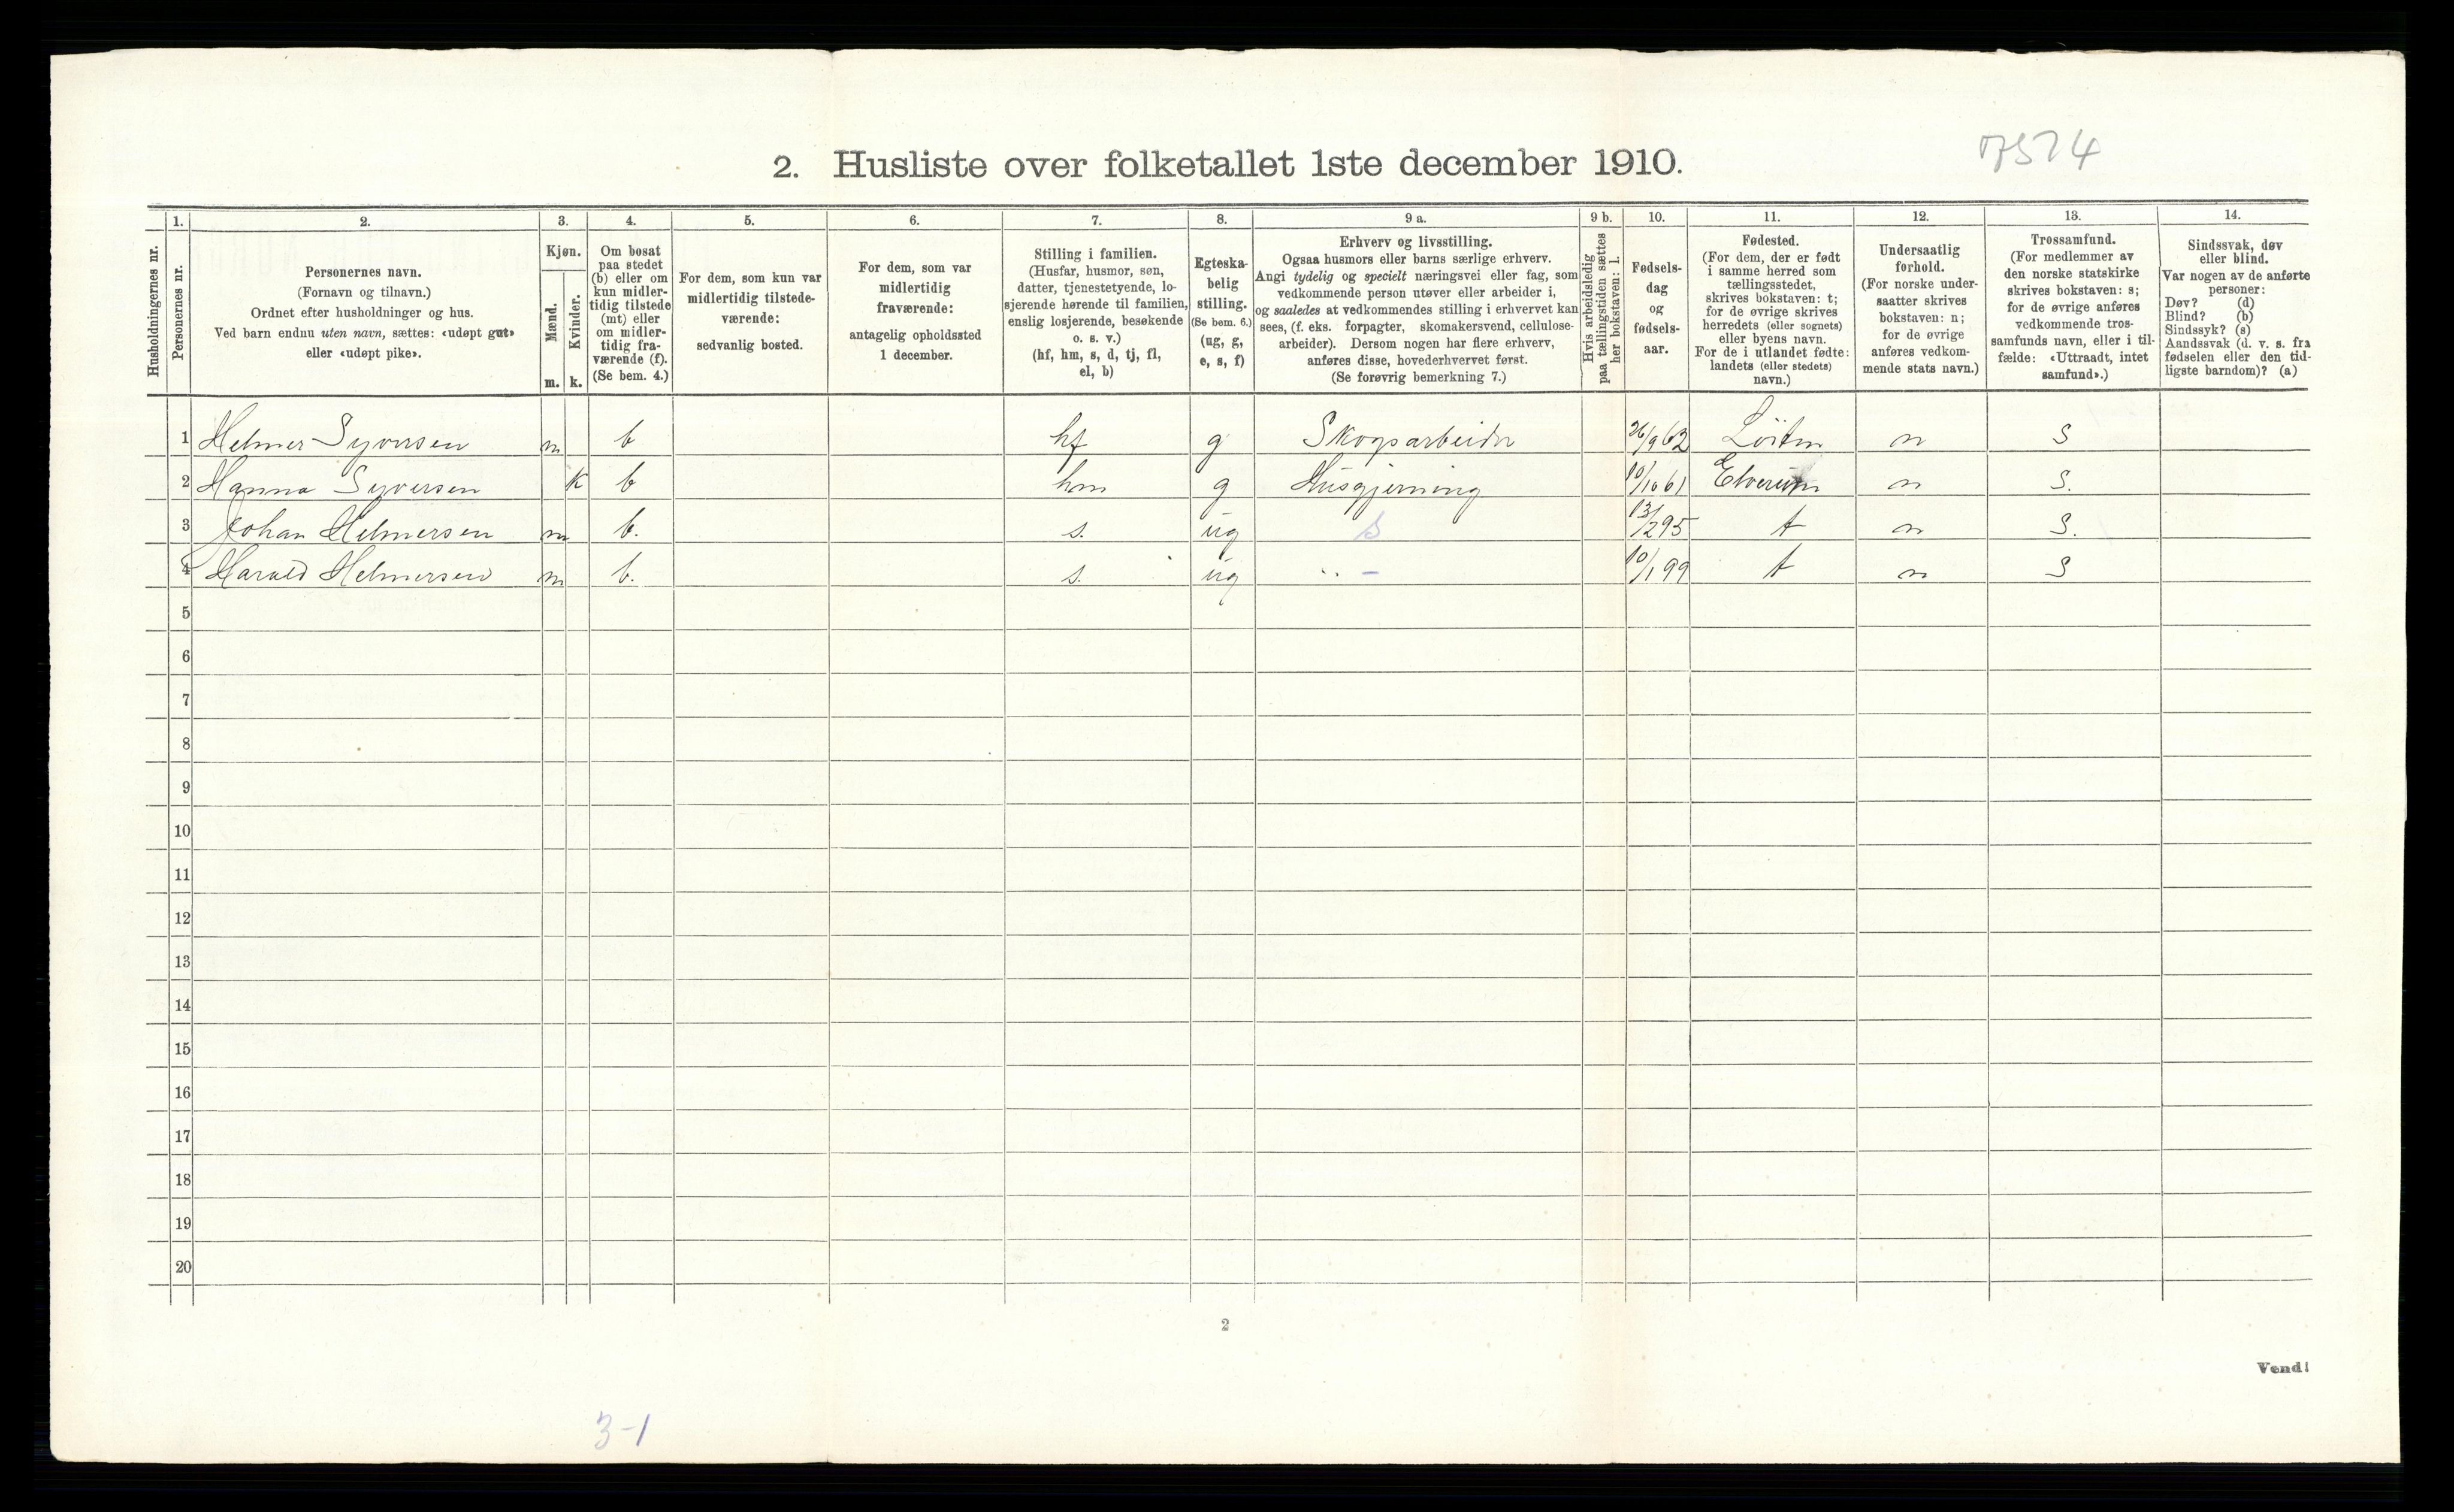 7574
2. Husliste over folketallet 1ste december 1910.
Husholdningernes nr.
1.
Personernes nr.
2.
Personernes navn.
(Fornavn og tilnavn.)
Ordnet efter husholdninger og hus.
Ved barn endnu uten navn, sættes: «udøpt gut»
eller «udøpt pike».
3.
Kjøn.
Mænd.
Kvinder.
m. k.
4.
Om bosat
paa stedet
(b) eller om
kun midler-
tidig tilstede
(mt) eller
om midler-
tidig fra-
værende (f).
(Se bem. 4.)
5.
For dem, som kun var
midlertidig tilstede-
værende:
sedvanlig bosted.
6.
For dem, som var
midlertidig
fraværende:
antagelig opholdssted
1 december.
7.
Stilling i familien.
(Husfar, husmor, søn,
datter, tjenestetyende, lo-
sjerende hørende til familien,
enslig losjerende, besøkende
o. s. v.)
(hf, hm, s, d, tj, fl,
el, b)
8.
Egteska-
belig
stilling.
(Se bem. 6.)
(ug, g,
e, s, f)
9 a.
Erhverv og livsstilling.
Ogsaa husmors eller barns særlige erhverv.
Angi tydelig og specielt næringsvei eller fag, som
vedkommende person utøver eller arbeider i,
og saaledes at vedkommendes stilling i erhvervet kan
sees, (f. eks. forpagter, skomakersvend, cellulose-
arbeider). Dersom nogen har flere erhverv,
anføres disse, hovederhvervet først.
(Se forøvrig bemerkning 7.)
9 b.
Hvis arbeidsledig
paa tællingstiden sættes
her bokstaven: l.
10.
Fødsels-
dag
og
fødsels-
aar.
11.
Fødested.
(For dem, der er født
i samme herred som
tællingsstedet,
skrives bokstaven: t;
for de øvrige skrives
herredets (eller sognets)
eller byens navn.
For de i utlandet fødte:
landets (eller stedets)
navn.)
12.
Undersaatlig
forhold.
(For norske under-
saatter skrives
bokstaven: n;
for de øvrige
anføres vedkom-
mende stats navn.)
13.
Trossamfund.
(For medlemmer av
den norske statskirke
skrives bokstaven: s;
for de øvrige anføres
vedkommende tros-
samfunds navn, eller i til-
fælde: «Uttraadt, intet
samfund».)
14.
Sindssvak, døv
eller blind.
Var nogen av de anførte
personer:
Døv? (d)
Blind? (b)
Sindssyk? (s)
Aandssvak (d. v. s. fra
fødselen eller den tid-
ligste barndom)? (a)
1 Helmer Syversen m b hf g Skogsarbeider 26/9 62 Löiten n S
2 Hanna Syversen k b hm g Husgjerning 10/10 61 Elverum n S.
3 Johan Helmersen m b. s. ug S 13/2 95 t n S.
4 Harald Helmersen m b. s. ug " - 10/1 99 t n S
5
6
7
8
9
10
11
12
13
14
15
16
17
18
19
20
2
Vend!
3-1